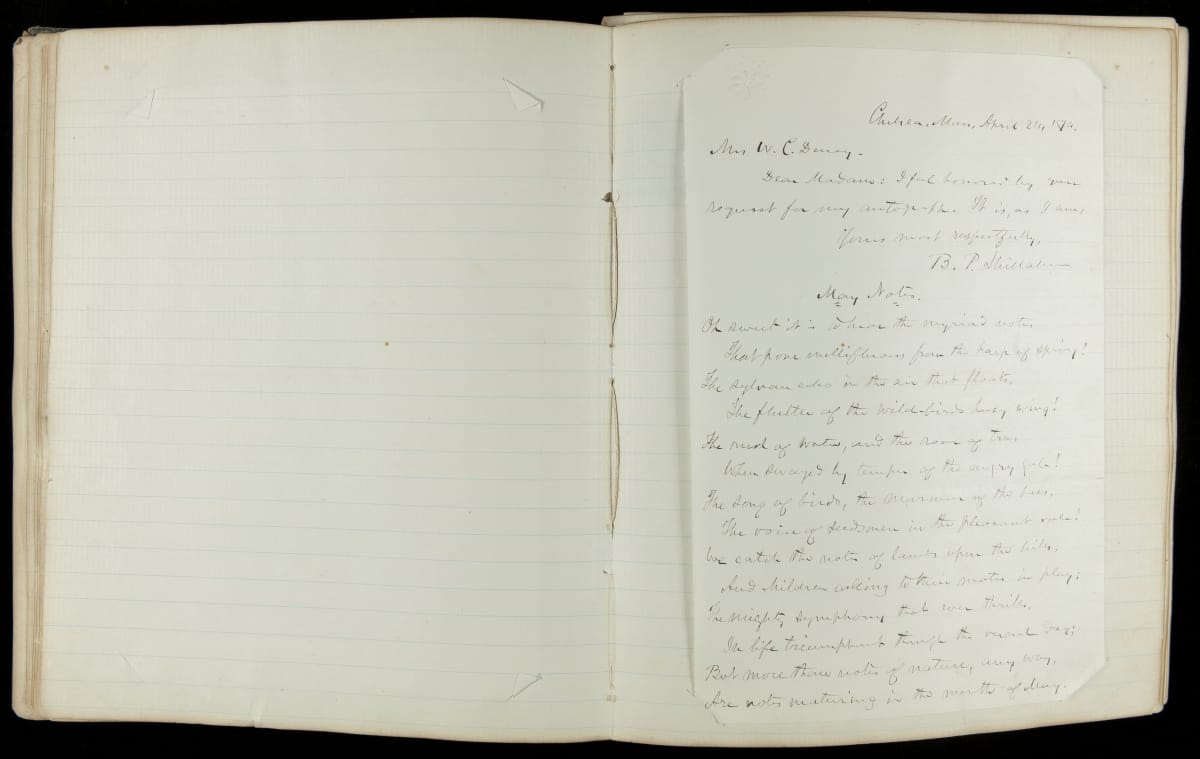 Chelsea, Mass, April 24, 1879.
Mrs W. C. Denny.
Dear Madam: I feel honored by your
request for my autograph. It is, as I am,
Yours most respectfully,
B. P. Shillaber
May Notes.
Oh sweet it is to hear the myriad notes
That pour mellifluous from the harp of spring!
The sylvan echo in the air that floats,
The flutter of the wild-birds busy wing!
The rush of water, and the roar of trees
When swayed by temper of the angry gale!
The song of birds, the murmur of the bees,
The voice of seedsmen in the pleasant vale!
We catch the notes of lambs upon the hills,
And children calling to their mates in play;
The mighty symphony that ever thrills,
In life triumphant through the vernal day;
But more than notes of nature, any way,
Are notes maturing in the month of May.